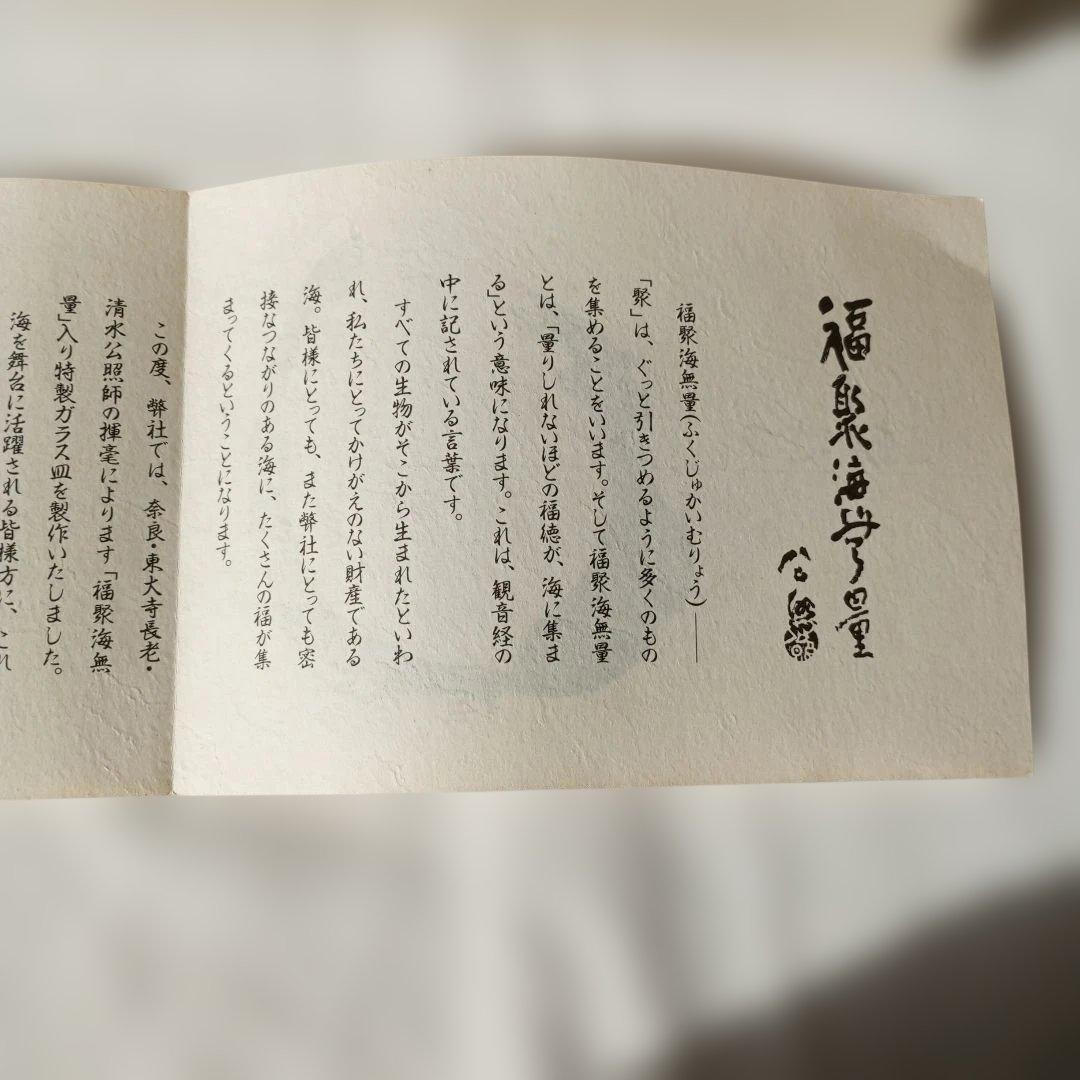 福聚海無量
公照
福聚海無量(ふくじゅかいむりょう)――
「聚」は、ぐっと引きつめるように多くのもの
を集めることをいいます。そして福聚海無量
とは、「量りしれないほどの福徳が、海に集ま
る」という意味になります。これは、観音経の
中に記されている言葉です。
すべての生物がそこから生まれたといわ
れ、私たちにとってかけがえのない財産である
海。皆様にとっても、また弊社にとっても密
接なつながりのある海に、たくさんの福が集
まってくるということになります。
この度、弊社では、奈良・東大寺長老・
清水公照師の揮毫によります「福聚海無
量」入り特製ガラス皿を製作いたしました。
海を舞台に活躍される皆様方に、これ